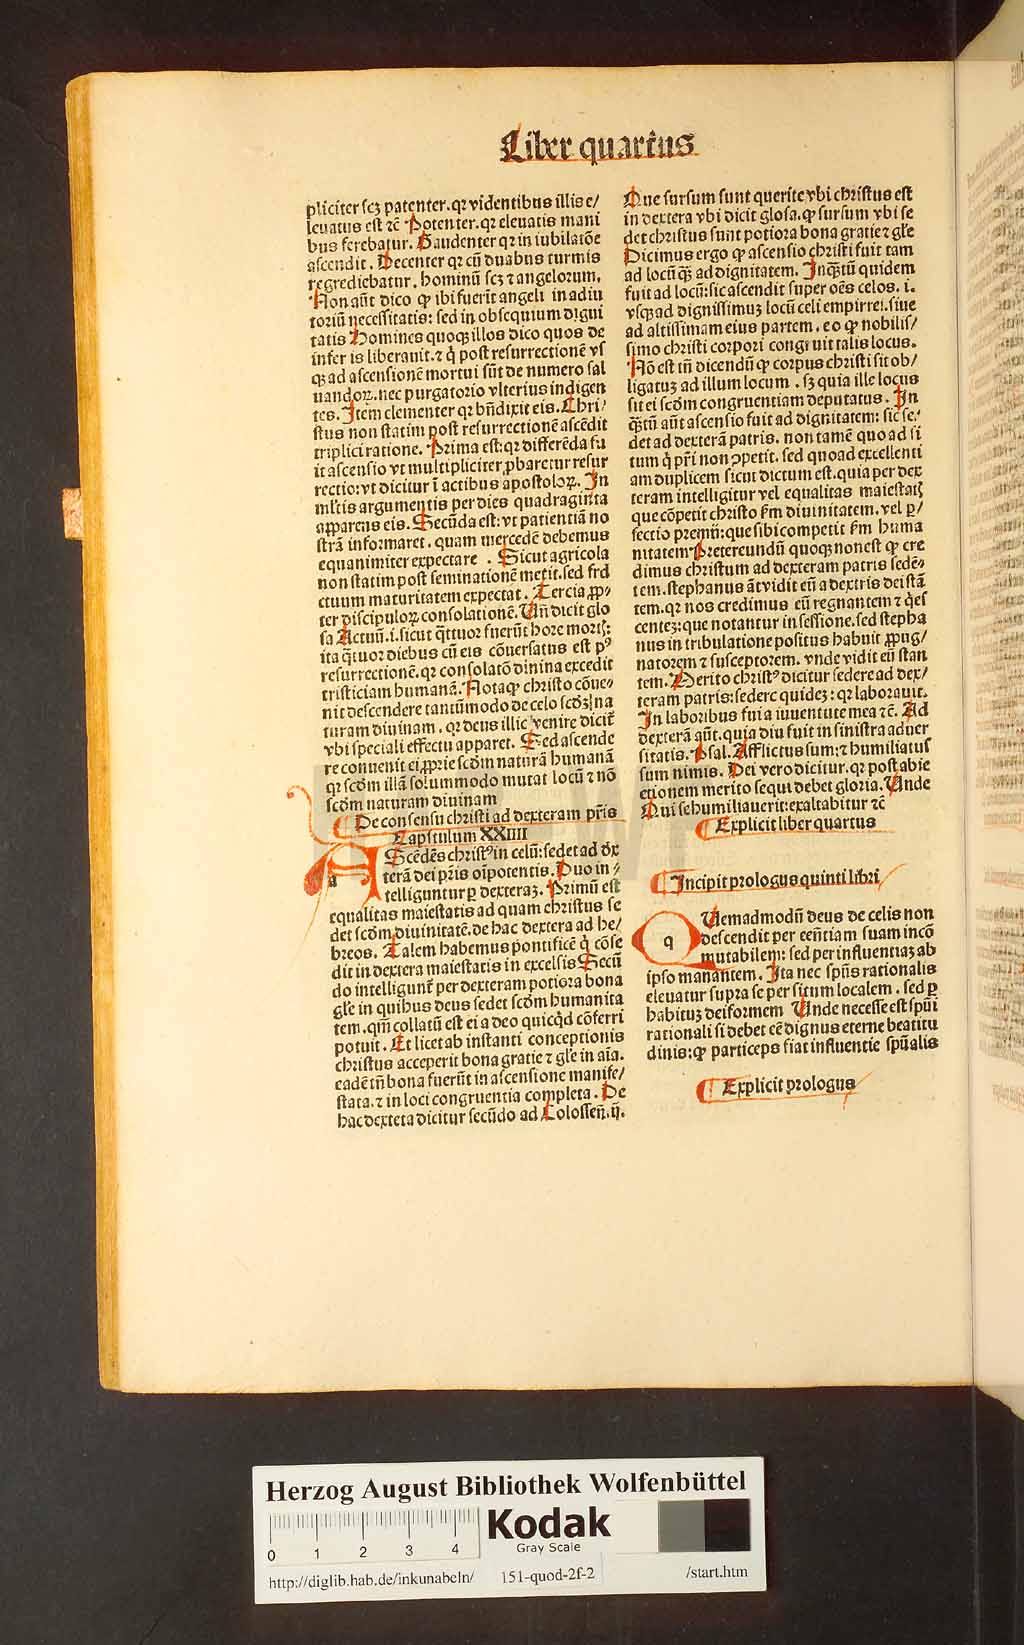 Liber quartus
pliciter scꝫ patenter. qꝛ videntibus illis e/
leuatus est ⁊c̄ Potenter. qꝛ eleuatis mani
bus ferebatur. Gaudenter qꝛ in iubilatōe
ascendit. Decenter qꝛ cū duabus turmis
regrediebatur. hominū scꝫ ⁊ angelorum,
Non aūt dico ꝙ ibi fuerīt angeli in adiu
toriū necessitatis: sed in obsequium digni
tatis Homines quoqꝫ illos dico quos de
infer is liberauit. ⁊ q̇ post resurrectionē vs
qꝫ ad ascensionē mortui sūt de numero sal
uandoꝝ. nec purgatorio vlterius indigen
tes. Item clementer qꝛ bn̄dixit eis. Chri/
stus non statim post resurrectionē ascēdit
triplici ratione. Prima est: qꝛ differēda fu
it ascensio vt multipliciter ꝓbaretur resur
rectio: vt dicitur ī actibus apostoloꝝ. In
ml̄tis argumentis per dies quadraginta
apparens eis. Secūda est: vt patientiā no
strā informaret. quam mercedē debemus
equanimiter expectare . Sicut agricola
non statim post seminationē metit. sed frū
ctuum maturitatem expectat. Tercia ꝓp⸗
ter discipuloꝝ consolationē. Vn̄ dicit glo
sa Actuū. i. sicut q̄ttuor fuerūt hore mortꝭ:
ita q̄tuor diebus cū eis cōuersatus est pꝰ
resurrectionē. qꝛ consolatō diuina excedit
tristiciam humanā. Nota ꝙ christo cōue⸗
nit descendere tantūmodo de celo scdꝫ na
turam diuinam. qꝛ deus illic venire dicit̄
vbi speciali effectu apparet. Sed ascende
re conuenit ei ꝓprie scdm naturā humanā
qꝛ scdm illā solummodo mutat locū ⁊ nō
scdm naturam diuinam
De consensu christi ad dexteram pr̄is
Capitulum XXIIII
AScēdēs christꝰ in celū: sedet ad dex
terā dei pr̄is oīpotentis. Duo in⸗
telliguntur ꝑ dexteraꝫ. Primū est
equalitas maiestatis ad quam christus se
det scdm diuinitatē. de hac dextera ad he/
breos. Talem habemus pontificē q̇ cōse
dit in dextera maiestatis in excelsis Secū
do intelligunt̄ per dexteram potiora bona
gl̄e in quibus deus sedet scdm humanita
tem. qm̄ collatū est ei a deo quicqd̄ cōferri
potuit. Et licet ab instanti conceptionis
christus acceperit bona gratie ⁊ gl̄e in aīa.
eadē tn̄ bona fuerūt in ascensione manife/
stata. ⁊ in loci congruentia completa. De
hac dexteta dicitur secūdo ad Colossen̄. ij.
Que sursum sunt querite vbi christus est
in dextera vbi dicit glosa. ꝙ sursum vbi se
det christus sunt potiora bona gratie ⁊ gl̄e
Dicimus ergo ꝙ ascensio christi fuit tam
ad locū qꝫ ad dignitatem. Inq̄stū quidem
fuit ad locū: sic ascendit super oēs celos. i.
vsqꝫ ad dignissimuꝫ locū celi empirrei. siue
ad altissimam eius partem. eo ꝙ nobilis/
simo christi corpori congruit talis locus.
Nō est tn̄ dicendū ꝙ corpus christi sit ob/
ligatuꝫ ad illum locum . sꝫ quia ille locus
sit ei scdm congruentiam deputatus. In
q̄stū aūt ascensio fuit ad dignitatem: sic se/
det ad dexterā patris. non tamē quo ad si
tum q̇ pr̄i non ɔpetit. sed quo ad excellenti
am duplicem sicut dictum est. quia per dex
teram intelligitur vel equalitas maiestatꝭ
que cōpetit christo ẜm diuinitatem. vel ꝑ/
fectio premij: que sibi competit ẜm huma
nitatem Pretereundū quoqꝫ non est ꝙ cre
dimus christum ad dexteram patris sedē⸗
tem. stephanus āt vidit eū a dextris dei stā
tem. qꝛ nos credimus eū regnantem ⁊ q̇es
centeꝫ: que notantur in sessione. sed stepha
nus in tribulatione positus habuit ꝓpug/
natorem ⁊ susceptorem. vnde vidit eū stan
tem. Merito christꝰ dicitur sedere ad dex/
teram patris: sedere quideꝫ: qꝛ laborauit.
In laboribus fui a iuuentute mea ⁊c̄. Ad
dexterā aūt. quia diu fuit in sinistra aduer
sitatis. Psal. Afflictus sum: ⁊ humiliatus
sum nimis. Dei vero dicitur. qꝛ post abie
ctionem merito sequi debet gloria. Unde
Qui se humiliauerit: exaltabitur ⁊c̄
Explicit liber quartus
Incipit prologus quinti libri
QUemadmodū deus de celis non
descendit per eēntiam suam incō
mutabilem: sed per influentiaꝫ ab
ipso manantem. Ita nec spūs rationalis
eleuatur supra se per situm localem. sed ꝑ
habituꝫ deiformem Unde necesse est spūi
rationali si debet eē dignus eterne beatitu
dinis: ꝙ particeps fiat influentie spūalis
Explicit prologus
Herzog August Bibliothek Wolfenbüttel
0 1 2 3 4
Kodak
Gray Scale
http://diglib.hab.de/inkunabeln/ 151-quod-2f-2 /start.htm